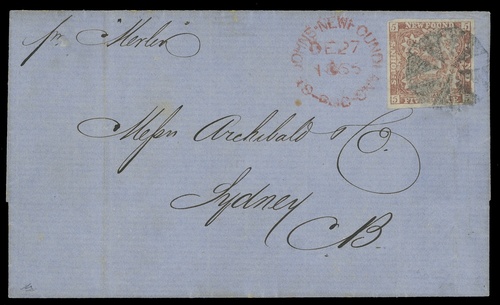 pr "Merlin"
ST. JOHN'S · NEWFOUNDLAND
DE 27
5 NEWFOUND 5
5
Messrs Archibald & Co.
Sydney
C.B.